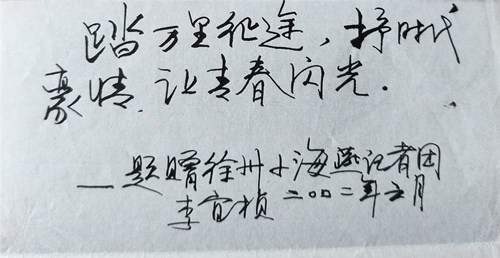 踏万里征途，抒时代
豪情.让青春闪光.
——题赠徐州小海燕记者团
李宜桢二〇〇二年六月